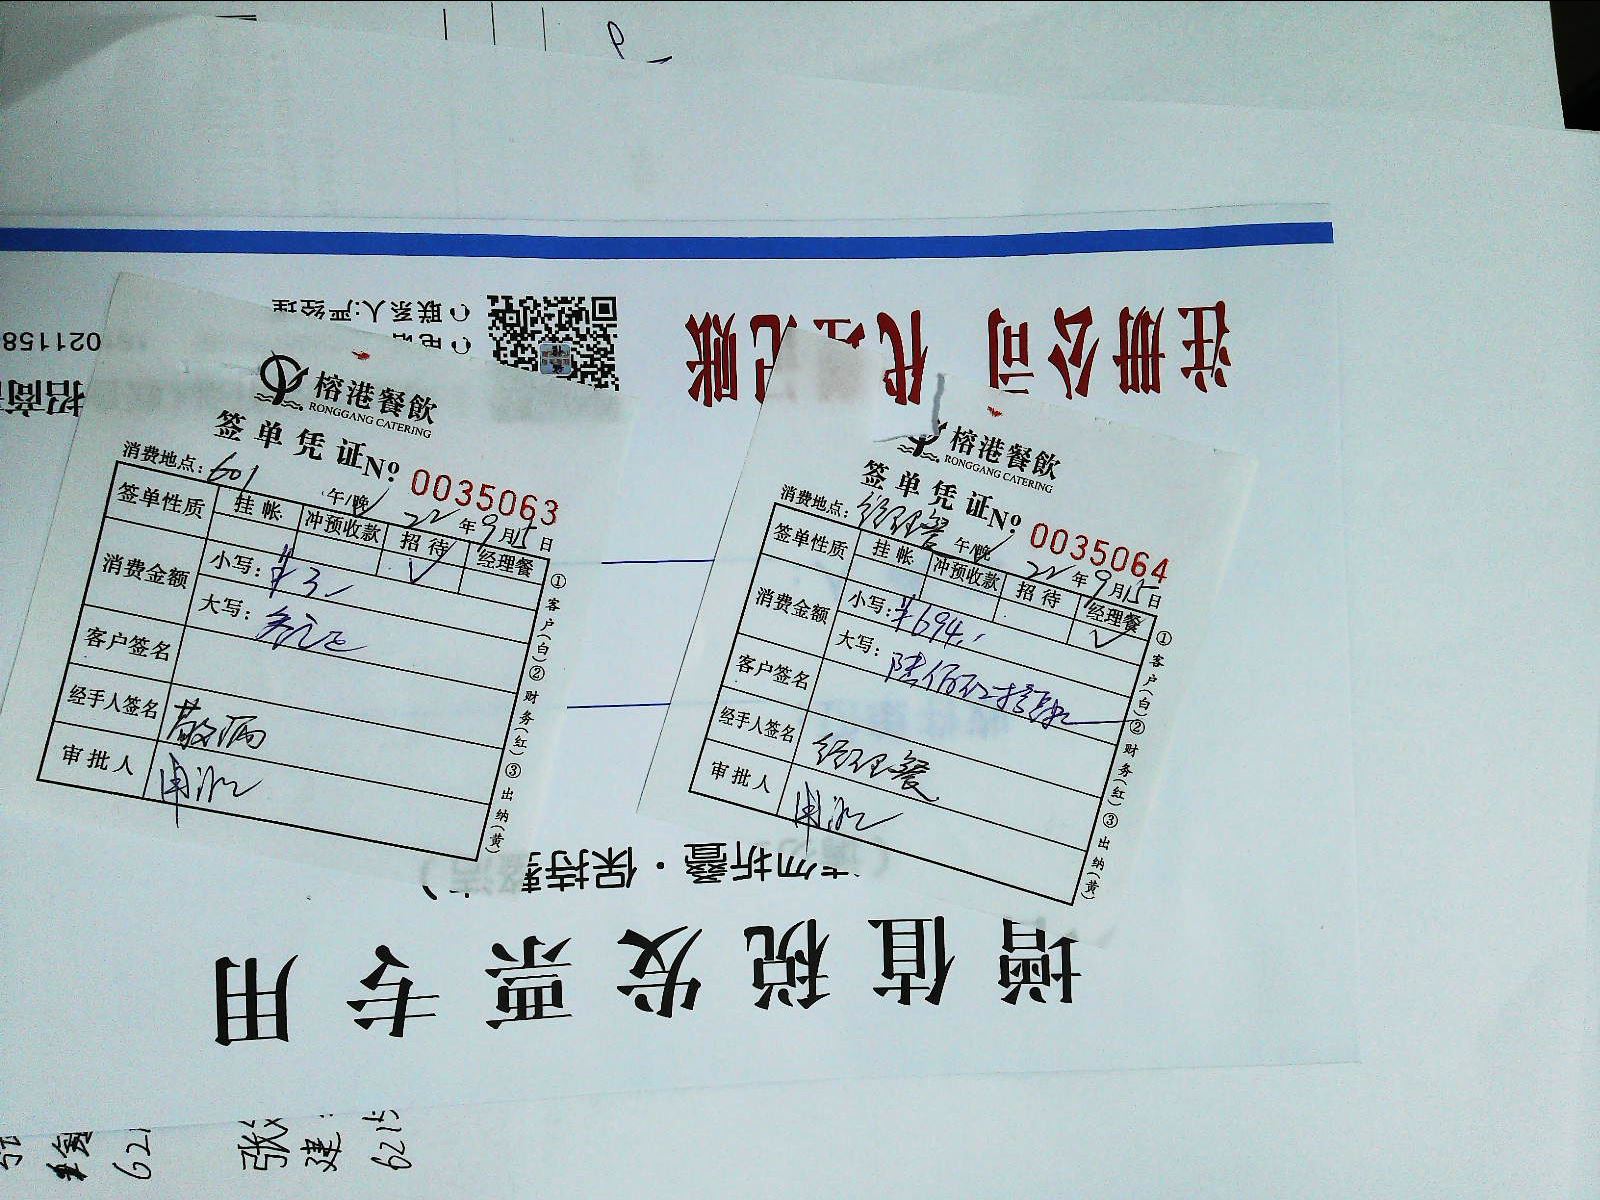 联系人:严经理
注册公司 代理记账
021158
招商
榕港餐飲
RONGGANG CATERING
签单凭证 No 0035063
消费地点: 601 午/晚 22年9月15日
签单性质 挂帐 冲预收款 招待 经理餐
消费金额 小写: ¥3
大写: 叁元正
客户签名
经手人签名
审批人
①客户(白)②财务(红)③出纳(黄)
榕港餐飲
RONGGANG CATERING
签单凭证 No 0035064
消费地点: 经理餐 午/晚 22年9月15日
签单性质 挂帐 冲预收款 招待 经理餐
消费金额 小写: ¥694
大写:
客户签名
经手人签名 经理餐
审批人
①客户(白)②财务(红)③出纳(黄)
勿折叠·保持
增值税发票专用
张建 6215
621